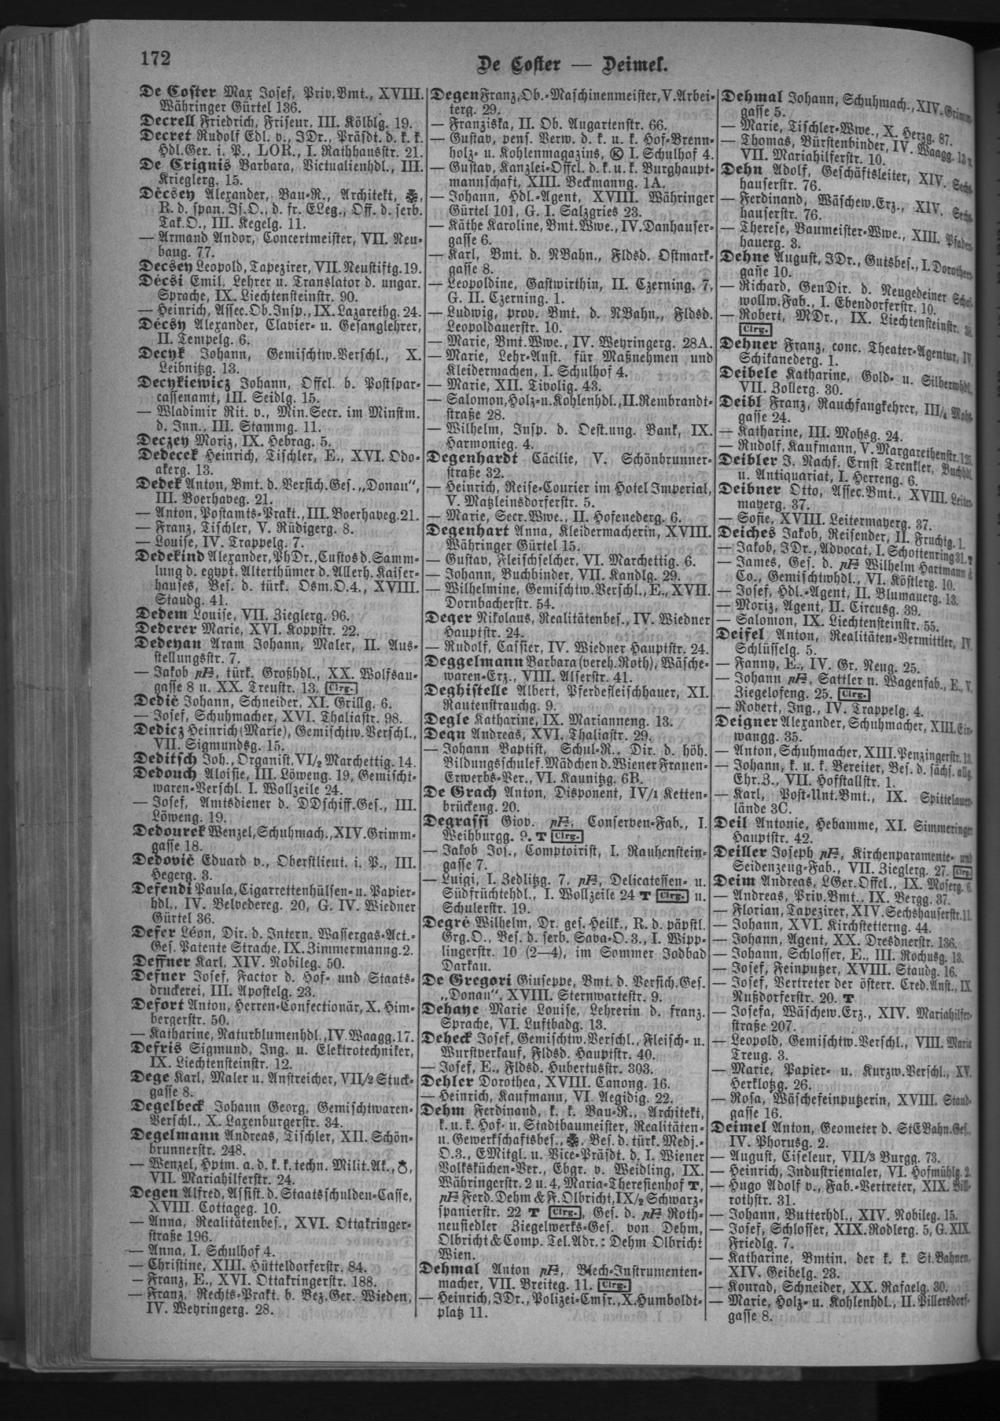 172
De Coster — Deimel.
De Coster Max Josef, Priv.Bmt., XVIII.
Währinger Gürtel 136.
Decrell Friedrich, Friseur, III. Kölblg. 19.
Decret Rudolf Edl. v., JDr., Präsdt. d. k. k.
Hdl.Ger. i. P., LOR., I. Rathhausstr. 21.
De Crignis Barbara, Victualienhdl., III.
Krieglerg. 15.
Décsey Alexander, Bau-R., Architekt,
R. d. span. Is.O., d. fr. ELeg., Off. d. serb.
Tak.O., III. Kegelg. 11.
— Armand Andor, Concertmeister, VII. Neu-
baug. 77.
Decsey Leopold, Tapezirer, VII. Neustiftg. 19.
Décsi Emil, Lehrer u. Translator d. ungar.
Sprache, IX. Liechtensteinstr. 90.
— Heinrich, Assec.Ob.Insp., IX. Lazarethg. 24.
Décsy Alexander, Clavier- u. Gesanglehrer,
II. Tempelg. 6.
Decyk Johann, Gemischtw.Verschl., X.
Leibnitzg. 13.
Decykiewicz Johann, Offcl. b. Postspar-
cassenamt, III. Seidlg. 15.
— Wladimir Rit. v., Min.Secr. im Minstm.
d. Inn., III. Stammg. 11.
Deczey Moriz, IX. Hebrag. 5.
Dedecek Heinrich, Tischler, E., XVI. Odo-
akerg. 13.
Dedek Anton, Bmt. d. Versich.Ges. „Donau“,
III. Boerhaveg. 21.
— Anton, Postamts-Prakt., III. Boerhaveg. 21.
— Franz, Tischler, V. Rüdigerg. 8.
— Louise, IV. Trappelg. 7.
Dedekind Alexander, PhDr., Custos d. Samm-
lung d. egypt. Alterthümer d. Allerh. Kaiser-
hauses, Bes. d. türk. Osm.O.4., XVIII.
Staudg. 41.
Dedem Louise, VII. Zieglerg. 96.
Dederer Marie, XVI. Koppstr. 22.
Dedeyan Aram Johann, Maler, II. Aus-
stellungsstr. 7.
— Jakob pP, türk. Großhdl., XX. Wolfsau-
gasse 8 u. XX. Treustr. 13. Clrg.
Dedić Johann, Schneider, XI. Grillg. 6.
— Josef, Schuhmacher, XVI. Thaliastr. 98.
Dedicz Heinrich (Marie), Gemischtw. Verschl.,
VII. Sigmundsg. 15.
Deditsch Joh., Organist, VI/2 Marchettig. 14.
Dedouch Aloisie, III. Löweng. 19, Gemischt-
waren-Verschl. I. Wollzeile 24.
— Josef, Amtsdiener d. DDschiff.Ges., III.
Löweng. 19.
Dedourek Wenzel, Schuhmach., XIV. Grimm-
gasse 18.
Dedović Eduard v., Oberstlieut. i. P., III.
Hegerg. 3.
Defendi Paula, Cigarrettenhülsen- u. Papier-
hdl., IV. Belvedereg. 20, G. IV. Wiedner
Gürtel 36.
Defer Léon, Dir. d. Intern. Wassergas-Act.-
Ges. Patente Strache, IX. Zimmermanng. 2.
Deffner Karl, XIV. Nobileg. 50.
Defner Josef, Factor d. Hof- und Staats-
druckerei, III. Apostelg. 23.
Defort Anton, Herren-Confectionär, X. Him-
bergerstr. 50.
— Katharine, Naturblumenhdl., IV. Waagg. 17.
Defris Sigmund, Ing. u. Elektrotechniker,
IX. Liechtensteinstr. 12.
Dege Karl, Maler u. Anstreicher, VII/2 Stuck-
gasse 8.
Degelbeck Johann Georg, Gemischtwaren-
Verschl., X. Laxenburgerstr. 34.
Degelmann Andreas, Tischler, XII. Schön-
brunnerstr. 248.
— Wenzel, Hptm. a. d. k. k. techn. Milit.Ak.,
VII. Mariahilferstr. 24.
Degen Alfred, Assist. d. Staatsschulden-Casse,
XVIII. Cottageg. 10.
— Anna, Realitätenbes., XVI. Ottakringer-
straße 196.
— Anna, I. Schulhof 4.
— Christine, XIII. Hütteldorferstr. 84.
— Franz, E., XVI. Ottakringerstr. 188.
— Franz, Rechts-Prakt. b. Bez.Ger. Wieden,
IV. Weyringerg. 28.
Degen Franz, Ob.-Maschinenmeister, V. Arbei-
terg. 29.
— Franziska, II. Ob. Augartenstr. 66.
— Gustav, pens. Verw. d. k. u. k. Hof-Brenn-
holz- u. Kohlenmagazins, Ⓚ I. Schulhof 4.
— Gustav, Kanzlei-Offcl. d. k. u. k. Burghaupt-
mannschaft, XIII. Beckmanng. 1A.
— Johann, Hdl.-Agent, XVIII. Währinger
Gürtel 101, G. I. Salzgries 23.
— Käthe Karoline, Bmt.Wwe., IV. Danhauser-
gasse 6.
— Karl, Bmt. d. NBahn., Fldsd. Ostmark-
gasse 8.
— Leopoldine, Gastwirthin, II. Czerning. 7,
G. II. Czerning. 1.
— Ludwig, prov. Bmt. d. NBahn., Fldsd.
Leopoldauerstr. 10.
— Marie, Bmt.Wwe., IV. Weyringerg. 28A.
— Marie, Lehr-Anst. für Maßnehmen und
Kleidermachen, I. Schulhof 4.
— Marie, XII. Tivolig. 43.
— Salomon, Holz- u. Kohlenhdl., II. Rembrandt-
straße 28.
— Wilhelm, Insp. d. Oest.ung. Bank, IX.
Harmonieg. 4.
Degenhardt Cäcilie, V. Schönbrunner-
straße 32.
— Heinrich, Reise-Courier im Hotel Imperial,
V. Matzleinsdorferstr. 5.
— Marie, Secr.Wwe., II. Hofenederg. 6.
Degenhart Anna, Kleidermacherin, XVIII.
Währinger Gürtel 15.
— Gustav, Fleischselcher, VI. Marchettig. 6.
— Johann, Buchbinder, VII. Kandlg. 29.
— Wilhelmine, Gemischtw.Verschl., E., XVII.
Dornbacherstr. 54.
Deger Nikolaus, Realitätenbes., IV. Wiedner
Hauptstr. 24.
— Rudolf, Cassier, IV. Wiedner Hauptstr. 24.
Deggelmann Barbara (vereh. Roth), Wäsche-
waren-Erz., VIII. Alserstr. 41.
Deghistelle Albert, Pferdefleischhauer, XI.
Rautenstrauchg. 9.
Degle Katharine, IX. Marianneng. 13.
Degn Andreas, XVI. Thaliastr. 29.
— Johann Baptist, Schul-R., Dir. d. höh.
Bildungsschule f. Mädchen d. Wiener Frauen-
Erwerbs-Ver., VI. Kaunitzg. 6B.
De Grach Anton, Disponent, IV/1 Ketten-
brückeng. 20.
Degrassi Giov. pP, Conserven-Fab., I.
Weihburgg. 9. T Clrg.
— Jakob Jos., Comptoirist, I. Rauhenstein-
gasse 7.
— Luigi, I. Zedlitzg. 7, pP, Delicatessen- u.
Südfrüchtehdl., I. Wollzeile 24 T Clrg. u.
Schulerstr. 19.
Degré Wilhelm, Dr. ges. Heilk., R. d. päpstl.
Grg.O., Bes. d. serb. Sava-O. 3., I. Wipp-
lingerstr. 10 (2—4), im Sommer Jodbad
Darkau.
De Gregori Giuseppe, Bmt. d. Versich.Ges.
„Donau“, XVIII. Sternwartestr. 9.
Dehaye Marie Louise, Lehrerin d. franz.
Sprache, VI. Luftbadg. 13.
Deheck Josef, Gemischtw.Verschl., Fleisch- u.
Wurstverkauf, Fldsd. Hauptstr. 40.
— Josef, E., Fldsd. Hubertusstr. 303.
Dehler Dorothea, XVIII. Canong. 16.
— Heinrich, Kaufmann, VI. Aegidig. 22.
Dehm Ferdinand, k. k. Bau-R., Architekt,
k. u. k. Hof- u. Stadtbaumeister, Realitäten-
u. Gewerkschaftsbes., Bes. d. türk. Medj.-
O.3., EMitgl. u. Vice-Präsdt. d. I. Wiener
Volksküchen-Ver., Ebgr. v. Weidling, IX.
Währingerstr. 2 u. 4, Maria-Theresienhof T,
pP Ferd. Dehm & F. Olbricht, IX/2 Schwarz-
spanierstr. 22 T Clrg., Ges. d. pP Roth-
neusiedler Ziegelwerks-Ges. von Dehm,
Olbricht & Comp. Tel.Adr.: Dehm Olbricht
Wien.
Dehmal Anton pP, Blech-Instrumenten-
macher, VII. Breiteg. 11. Clrg.
— Heinrich, JDr., Polizei-Cmsr., X. Humboldt-
platz 11.
Dehmal Johann, Schuhmach., XIV. Grimm-
gasse 5.
— Marie, Tischler-Wwe., X. Herzg. 87.
— Thomas, Bürstenbinder, IV. Waagg.
VII. Mariahilferstr. 10.
Dehn Adolf, Geschäftsleiter, XIV. Sechs-
hauserstr. 76.
— Ferdinand, Wäschew.Erz., XIV. Sechs-
hauserstr. 76.
— Therese, Baumeister-Wwe., XIII.
hauerg. 3.
Dehne August, JDr., Gutsbes., I. Dorotheer-
gasse 10.
— Richard, GenDir. d. Neugedeiner
wollw.Fab., I. Ebendorferstr. 10.
— Robert, MDr., IX. Liechtensteinstr.
Clrg.
Dehner Franz, conc. Theater-Agentur, IV.
Schikanederg. 1.
Deibele Katharine, Gold- u. Silberwhdl.
VII. Zollerg. 30.
Deibl Franz, Rauchfangkehrer, III/4 Mohs-
gasse 24.
— Katharine, III. Mohsg. 24.
— Rudolf, Kaufmann, V. Margarethenstr.
Deibler J. Nachf. Ernst Trenkler, Buchhdl.
u. Antiquariat, I. Herreng. 6.
Deibner Otto, Assec.Bmt., XVIII. Leiter-
mayerg. 37.
— Sofie, XVIII. Leitermayerg. 37.
Deiches Jakob, Reisender, II. Fruchtg. 1.
— Jakob, JDr., Advocat, I. Schottenring
— James, Ges. d. pP Wilhelm Hartmann &
Co., Gemischtwhdl., VI. Köstlerg. 10.
— Josef, Hdl.-Agent, II. Blumauerg. 13.
— Moriz, Agent, II. Circusg. 39.
— Salomon, IX. Liechtensteinstr. 55.
Deifel Anton, Realitäten-Vermittler, IV.
Schlüsselg. 5.
— Fanny, E., IV. Gr. Neug. 25.
— Johann pP, Sattler u. Wagenfab., E., V.
Ziegelofeng. 25. Clrg.
— Robert, Ing., IV. Trappelg. 4.
Deigner Alexander, Schuhmacher, XIII. Ein-
wangg. 35.
— Anton, Schuhmacher, XIII. Penzingerstr.
— Johann, k. u. k. Bereiter, Bes. d. sächs. allg.
Ehr.Z., VII. Hofstallstr. 1.
— Karl, Post-Unt.Bmt., IX. Spittelauer-
lände 3C.
Deil Antonie, Hebamme, XI. Simmeringer
Hauptstr. 42.
Deiller Joseph pP, Kirchenparamente- und
Seidenzeug-Fab., VII. Zieglerg. 27. Clrg.
Deim Andreas, LGer.Offcl., IX. Moserg. 6.
— Andreas, Priv.Bmt., IX. Bergg. 37.
— Florian, Tapezirer, XIV. Sechshauserstr. 11.
— Johann, XVI. Kirchstetterng. 44.
— Johann, Agent, XX. Dresdnerstr. 136.
— Johann, Schlosser, E., III. Rochusg. 13.
— Josef, Feinputzer, XVIII. Staudg. 16.
— Josef, Vertreter der österr. Cred.Anst., IX.
Nußdorferstr. 20. T
— Josefa, Wäschew.Erz., XIV. Mariahilfer-
straße 207.
— Leopold, Gemischtw.Verschl., VIII. Maria
Treug. 3.
— Marie, Papier- u. Kurzw.Verschl., XV.
Herklotzg. 26.
— Rosa, Wäschefeinputzerin, XVIII. Staud-
gasse 16.
Deimel Anton, Geometer d. StEBahn.Ges.
IV. Phorusg. 2.
— August, Ciseleur, VII/3 Burgg. 73.
— Heinrich, Industriemaler, VI. Hofmühlg. 2.
— Hugo Adolf v., Fab.-Vertreter, XIX. Bill-
rothstr. 31.
— Johann, Butterhdl., XIV. Nobileg. 15.
— Josef, Schlosser, XIX. Rodlerg. 5, G. XIX.
Friedlg. 7.
— Katharine, Bmtin. der k. k. St.Bahnen,
XIV. Geibelg. 23.
— Konrad, Schneider, XX. Rafaelg. 30.
— Marie, Holz- u. Kohlenhdl., II. Pillersdorf-
gasse 8.